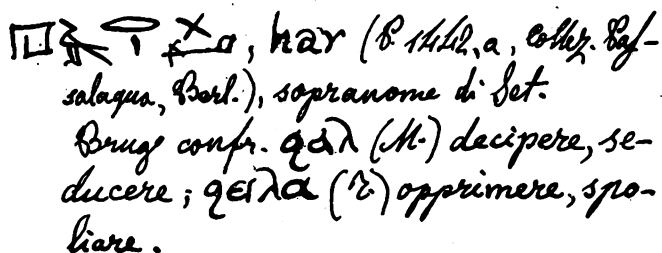 , har (P. 1442, a, collez. Pas-
salaqua, Berl.), sopranome di Set.
Brugs confr. ϩⲁⲗ (M.) decipere, se-
ducere; ϩⲉⲓⲗⲁ (T.) opprimere, spo-
liare.